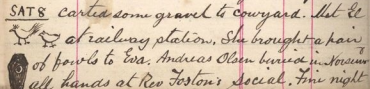 SAT 8 carted some gravel to cowyard. Met El
at railway station. She brought a pair
of fowls to Eva. Andreas Olsen buried in Norsewd
all hands at Rev Toston's Social. Fine night